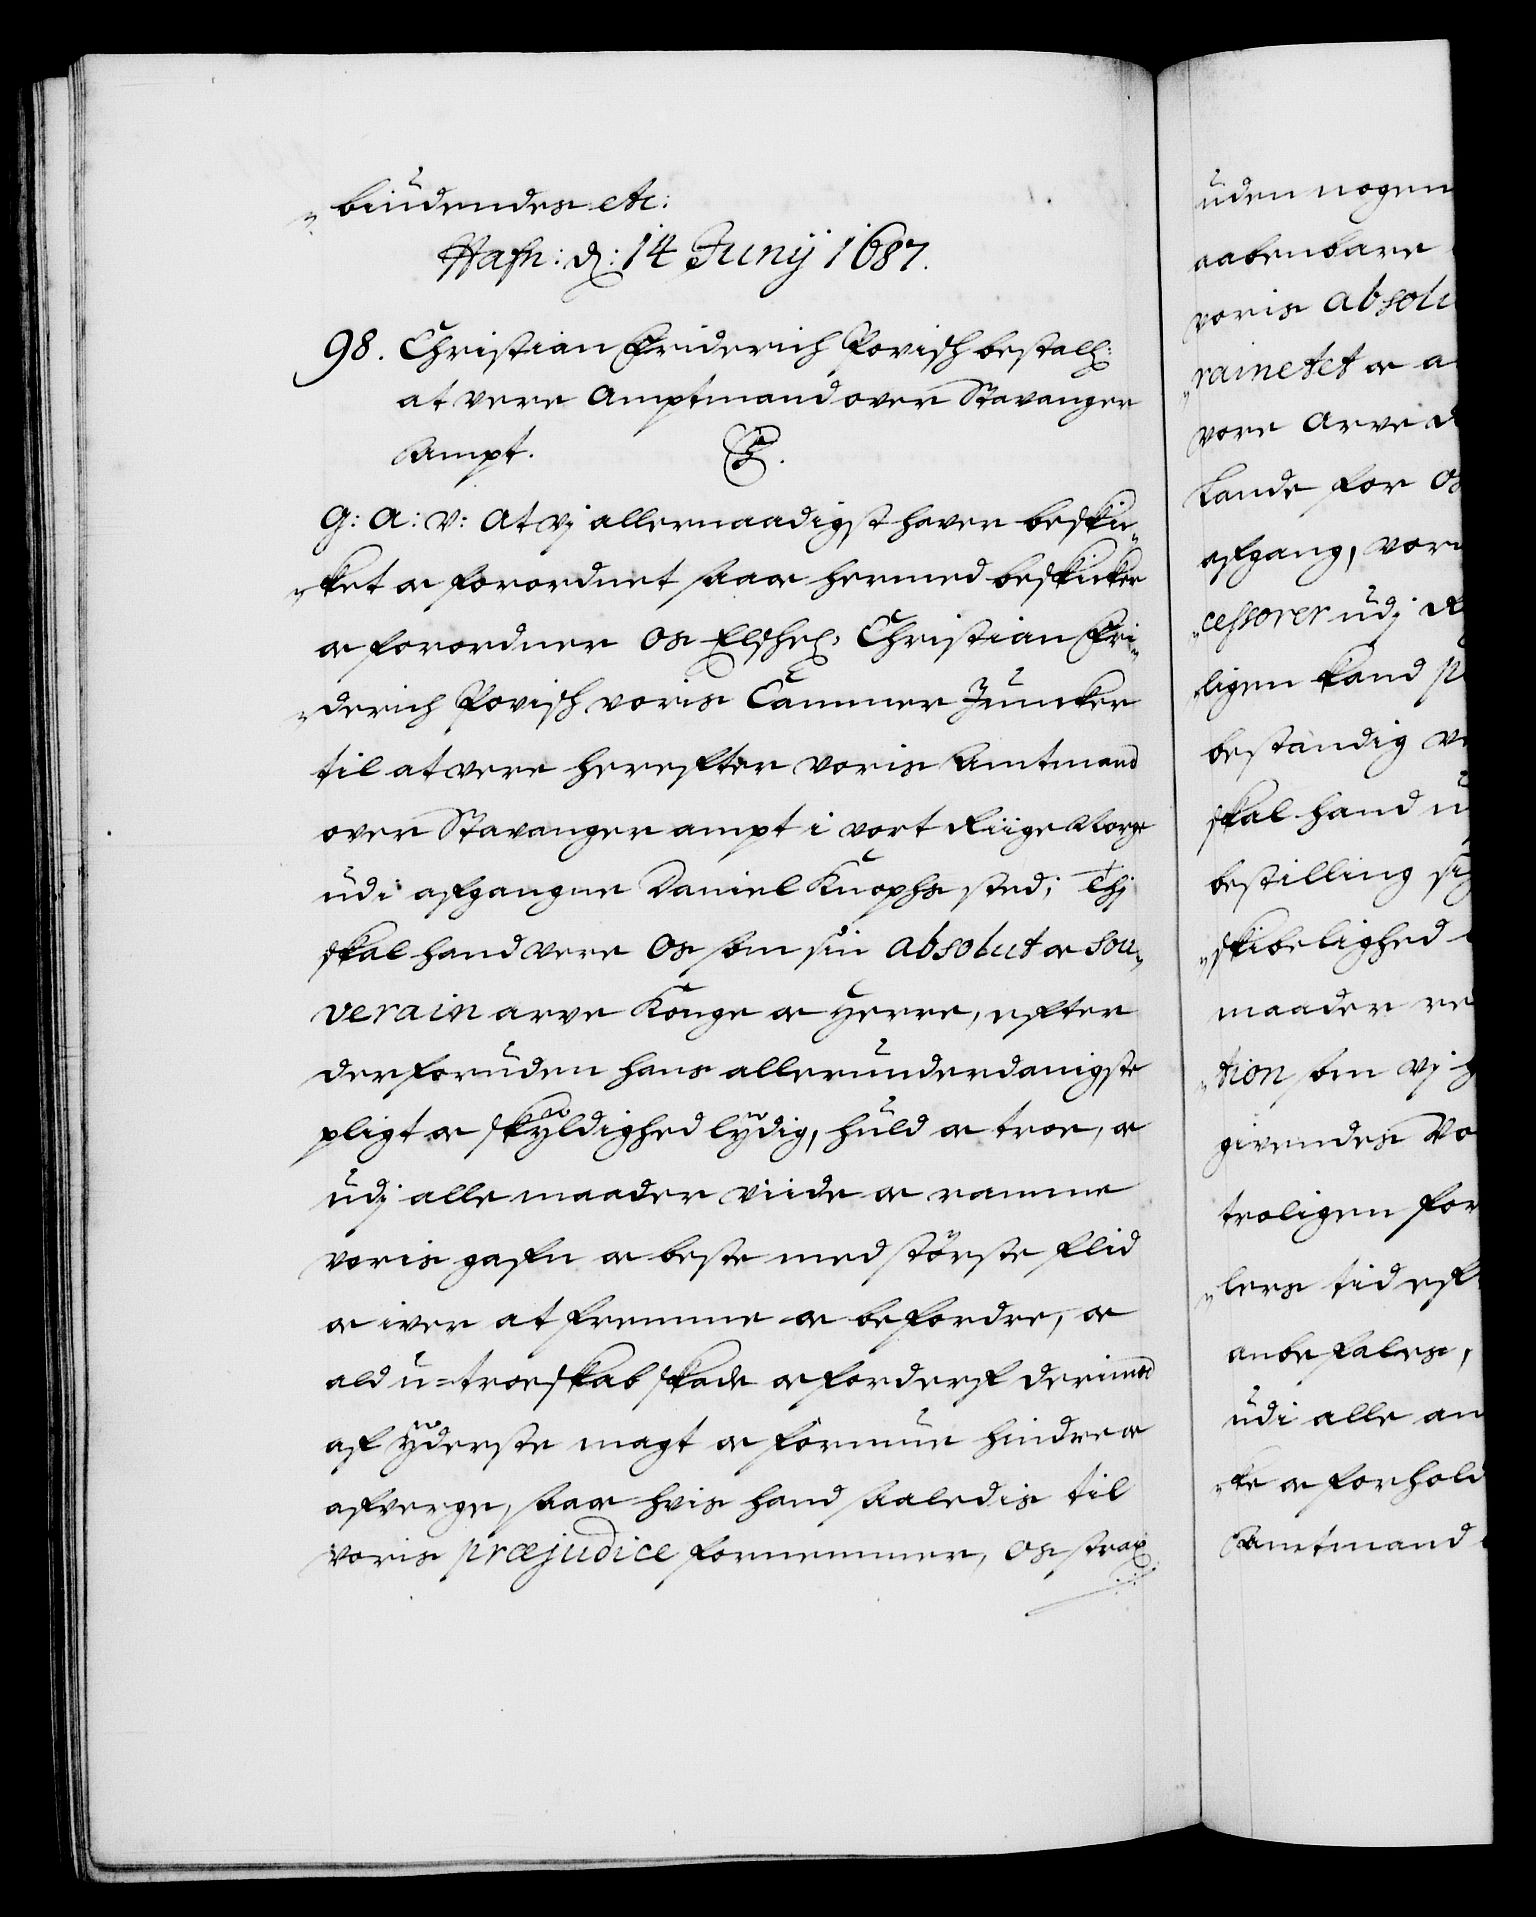 „biudendes etc:
Hafn: d: 14 Junij 1687.
98. Christian Friderich Powisch bestall:
at vere Amptmand over Stavanger
Ampt.
G: A: V: At Vj allernaadigst haver beskic„
„ket oc forordnet saa oc hermed beskicker
oc forordner Os Elschel: Christian Fri„
„derich Powisch voris Cammer Juncker
til at vere herefter voris Amtmand
over Stavanger ampt i vort Riige Norge
udi afgangne Daniel Knophs sted; Thj
skal hand vere Os som sin absolut oc sou„
verain arve Konge oc Herre, efter
der foruden hans allerunderdanigste
pligt oc skyldighed lydig, huld oc troe, oc
udj alle maader viide oc ramme
voris gafn oc beste med störste flid
oc iver at fremme oc befordre, oc
ald u=troeskab skade oc forderf derimod
af yderste magt oc formue hindre oc
afverge, saa oc hvis hand saaledis til
voris præjudice fornemmer, Os strax
uden nogen
aabenbare
voris absolu
„rainetet oc a
vore Arve
Lande for Os
afgang, vor
„cessorer udj R
„ligen kand
bestandig ve
skal hand u
bestilling sig
„skibelighed
maader re
„tion som Vj
givendes Vo
troligen for
„lers tid eft
anbefales,
udi alle an
„ke oc forhold
Amtmand